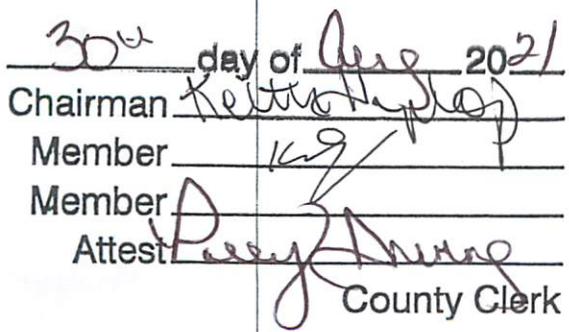 30th day of Aug 2021
Chairman Keith
Member
Member
Attest
County Clerk